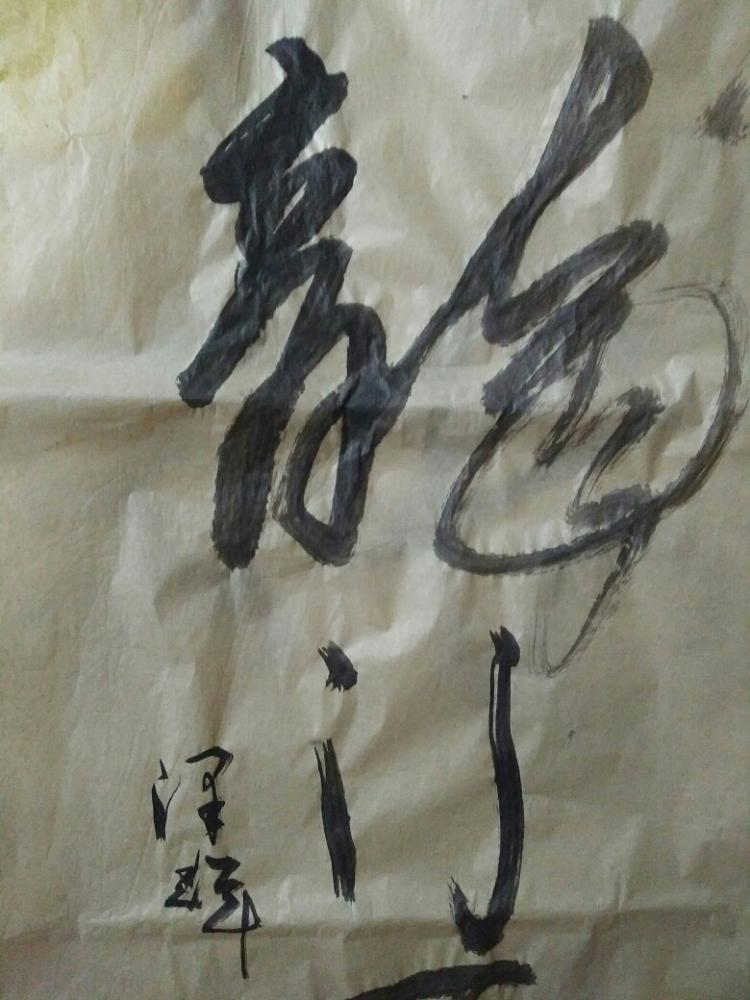 龍门
泽辉